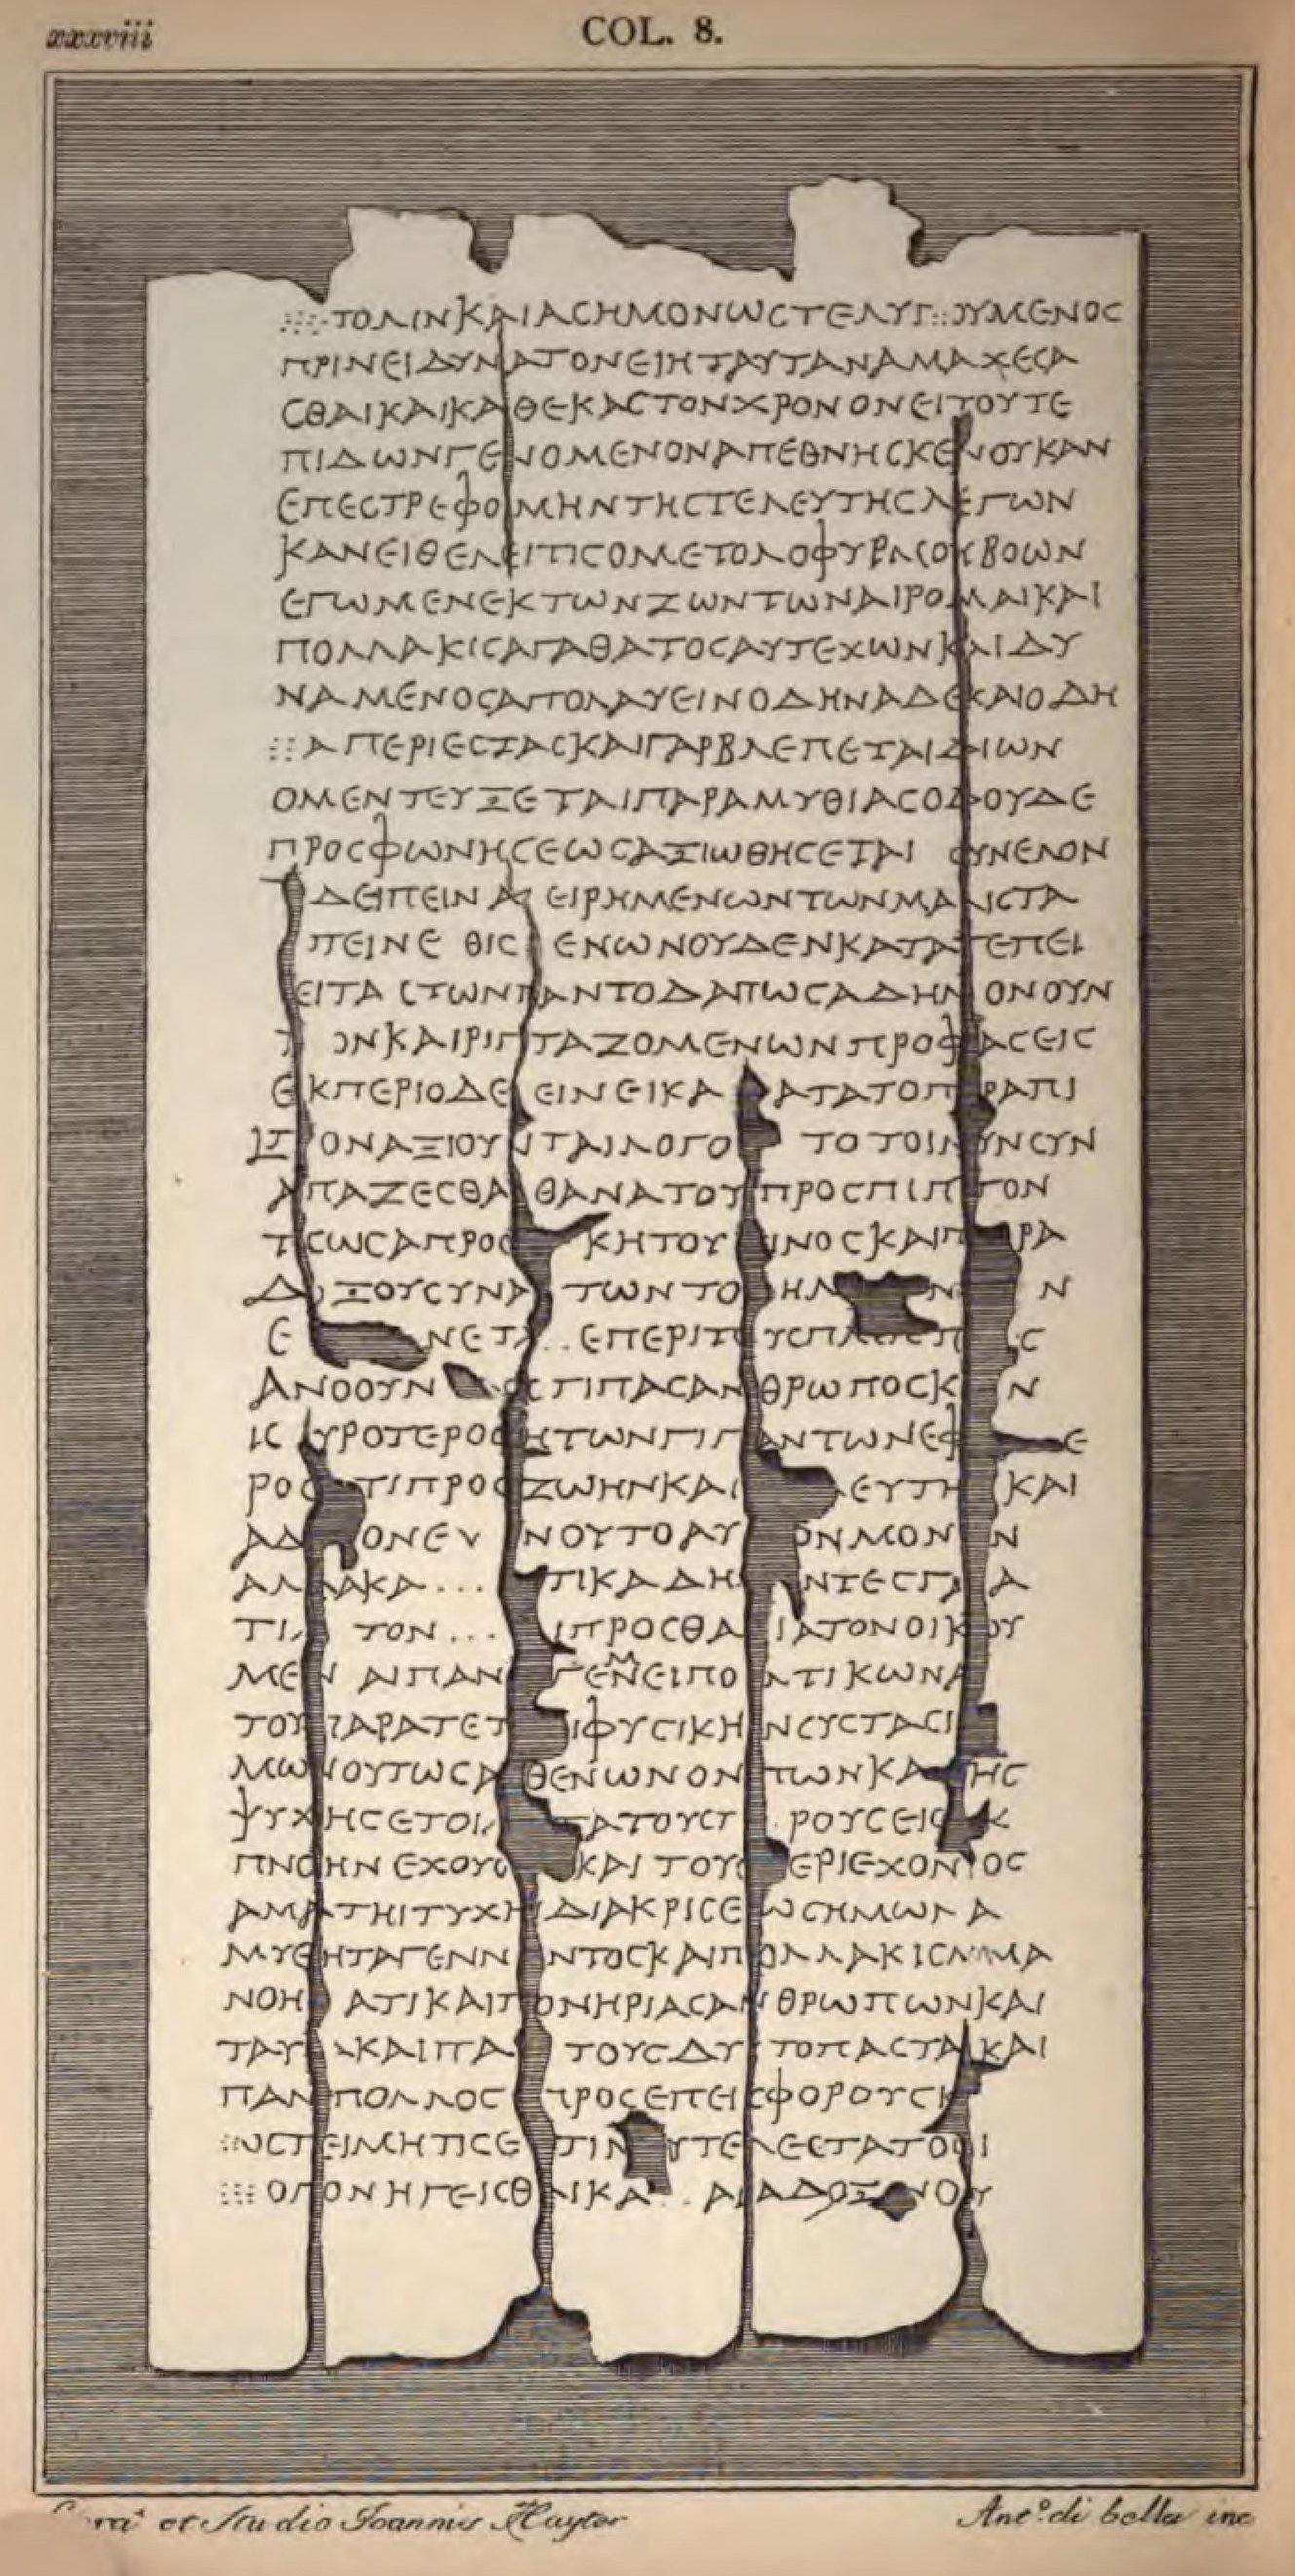 xxxviii
COL. 8.
ΤΟΛΙΝΚΑΙΑCΗΜΟΝΩCΤΕΛΥΓ::ΟΥΜΕΝΟC
ΠΡΙΝΕΙΔΥΝΑΤΟΝΕΙΗΤΑΥΤΑΝΑΜΑΧΕCΑ
CΘΑΙΚΑΙΚΑΘΕΚΑCΤΟΝΧΡΟΝΟΝΕΙΤΟΥΤΕ
ΠΙΔΩΝΓΕΝΟΜΕΝΟΝΑΠΕΘΝΗCΚΕΝΟΥΚΑΝ
ΕΠΕCΤΡΕΦΟΜΗΝΤΗCΤΕΛΕΥΤΗCΛΕΓΩΝ
ΚΑΝΕΙΘΕΛΕΙΤΙCΟΜΕΤΟΛΟΦΥΡΑCΟΥΒΟΩΝ
ΕΓΩΜΕΝΕΚΤΩΝΖΩΝΤΩΝΑΙΡΟΜΑΙΚΑΙ
ΠΟΛΛΑΚΙCΑΓΑΘΑΤΟCΑΥΤΕΧΩΝΚΑΙΔΥ
ΝΑΜΕΝΟCΑΠΟΛΑΥΕΙΝΟΔΗΝΑΔΕΚΑΙΟΔΗ
::ΑΠΕΡΙΕCΤΑCΚΑΙΓΑΡΒΛΕΠΕΤΑΙΔΙΩΝ
ΟΜΕΝΤΕΥΞΕΤΑΙΠΑΡΑΜΥΘΙΑCΟΔΟΥΔΕ
ΠΡΟCΦΩΝΗCΕΩCΑΞΙΩΘΗCΕΤΑΙ CΥΝΕΛΟΝ
ΔΕΙΠΕΙΝ Α ΕΙΡΗΜΕΝΩΝΤΩΝΜΑΛΙCΤΑ
ΠΕΙΝΕ ΘΙC ΕΝΩΝΟΥΔΕΝΚΑΤΑΤΕΠΕΙ
ΕΙΤΑ CΤΩΝΠΑΝΤΟΔΑΠΩCΑΔΗΛ ΟΝΟΥΝ
Τ ΟΝΚΑΙΡΙΠΤΑΖΟΜΕΝΩΝΠΡΟΦΑCΕΙC
ΕΚΠΕΡΙΟΔΕ ΕΙΝΕΙΚΑ ΑΤΑΤΟΠ ΡΑΠΙ
ΙΤ ΟΝΑΞΙΟΥΝΤΑΙΛΟΓΟ ΤΟΤΟΙΝΥΝCΥΝ
ΑΠΑΖΕCΘΑ ΘΑΝΑΤΟΥΠΡΟCΠΙΠΤΟΝ
ΤΙCΩCΑΠΡΟC ΚΗΤΟΥ ΙΝΟCΚΑΙΠ ΡΑ
ΔΟΞΟΥCΥΝΑ ΤΩΝΤΟ ΗΛ Ν Ν
Ε ΝΕΤΑ..ΕΠΕΡΙΤΟΥCΠΛ C
ΑΝΟΟΥΝ CΤΙΠΑCΑΝΘΡΩΠΟCΚ Ν
ΙC ΥΡΟΤΕΡΟC ΗΤΩΝΓΙΓΑΝΤΩΝΕΦ Ε
ΡΟC ΤΙΠΡΟCΖΩΗΝΚΑΙ ΛΕΥΤΗ ΚΑΙ
ΑΔ ΟΝΕΝ ΝΟΥΤΟΑΥ ΟΝΜΟΝ Ν
ΑΛΛΑΚΑ... ΤΙΚΑΔΗ ΝΤΕCΓΑ Α
ΤΙ ΤΟΝ... ΙΠΡΟCΘΑΝΑΤΟΝΟΙΚΟΥ
ΜΕΝ ΑΙΠΑΝ ΓΕΝΕΙΠΟ ΑΤΙΚΩΝΑ
ΤΟΥΠΑΡΑΤΕΤ ΙΦΥCΙΚΗΝCΥCΤΑCΙ
ΜΩΝΟΥΤΩCΑ ΘΕΝΩΝΟΝΠΩΝΚΑ ΤΗC
ΨΥΧΗCΕΤΟΙ ΤΑΤΟΥCΓ.ΡΟΥCΕΙC Κ
ΠΝΟΗΝΕΧΟΥC ΚΑΙΤΟΥ ΕΡΙΕΧΟΝΤΟC
ΑΜΑΤΗΙΤΥΧΗΙΔΙΑΚΡΙCΕΩCΗΜΩΝΑ
ΜΥΘΗΤΑΓΕΝΝ ΝΤΟCΚΑΙΠΟΛΛΑΚΙC ΜΑ
ΝΟΗ ΑΤΙΚΑΙΠΟΝΗΡΙΑCΑΝΘΡΩΠΩΝΚΑΙ
ΤΑΥ ΚΑΙΠΑ ΤΟΥCΔΥ ΤΟΠΑCΤΑ ΚΑΙ
ΠΑΝ ΠΟΛΛΟC ΠΡΟCΕΠΕΙCΦΟΡΟΥCΗ
ΩCΤΕΙΜΗΤΙCΕ ΤΙΝ ΥΤΕΛΕCΤΑΤΟC Ι
ΟΓΟΝΗΓΕΙCΘΑΙΚΑ..ΑΙΑΔΟΞ ΝΟΥ
Cura et Studio Joannis Hayter
Ant.º di bella inc